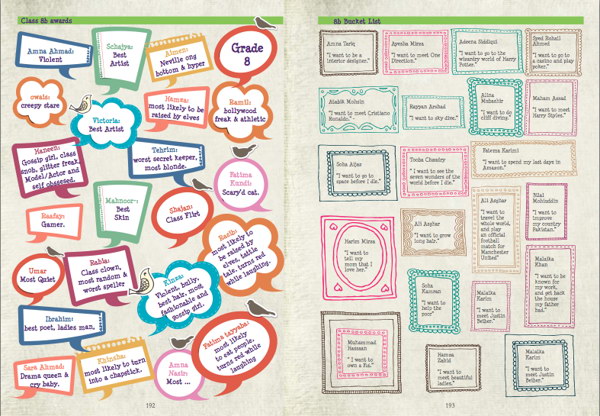 Class 8b awards
Amna Ahmad:
Violent
Schajya:
Best
Artist
Aimen:
Neville ong
bottom & hyper
Grade
8
owais:
creepy stare
Victoria:
Best Artist
Hamza:
most likely to be
raised by elves
Ramil:
hollywood
freak & athletic
Haneen:
Gossip girl, class
snob, glitter freak,
Model/Actor and
self obsessed.
Tehrim:
worst secret keeper,
most blonde.
Fatima
Kundi:
Scary'd cat.
Mahnoor:
Best
Skin
Shajan:
Class Flirt
Raafay:
Gamer.
Rasib:
most likely to
be raised by
elves, tattle
tale, turns red
while laughing.
Umar
Most Quiet
Rabia:
Class clown,
most random &
worst speller
Kinza:
Violent, bully,
best hair, most
fashionable and
gossip girl.
Ibrahim:
best poet, ladies man,
Fatima tayyaba:
most likely
to eat people,
turns red while
laughing
Sara Ahmad:
Drama queen &
cry baby.
Khinsha:
most likely to turn
into a chapstick.
Amna
Nasir:
Most ...
192
8b Bucket List
Amna Tariq
"I want to be a
interior designer."
Ayesha Mirza
"I want to meet One
Direction."
Adeena Siddiqui
"I want to go to the
wizardry world of Harry
Potter."
Syed Sohail
Ahmed
"I want to go to
a casino and play
poker."
Aladik Mohsin
"I want to meet Cristiano
Ronaldo."
Rayyan Amhad
"I want to sky dive."
Alina
Mubashir
"I want to do
cliff diving."
Maham Asad
"I want to meet
Harry Styles."
Soha Aijaz
"I want to go to
space before I die."
Tooba Chaudry
"I want to see the
seven wonders of the
world before I die."
Raleena Karimi
"I want to spend my last days in
Amazon."
Harim Mirza
"I want to
tell my
mom that I
love her."
Ali Asghar
"I want to grow
long hair."
Ali Asghar
"I want to
travel the
whole world,
and play
an official
football
match for
Manchester
United"
Bilal
Mohiuddin
"I want to
improve my
country
Pakistan."
Soha
Kamran
"I want to
help the
poor"
Malaika
Karim
"I want to meet
Justin Beiber."
Malaika
Khan
"I want to be
known for
my work,
and get back
the house
my father
had."
Muhammad
Hassaan
"I want to
own a Kia."
Hamza
Zahid
"I want to meet
beautiful ladies."
Malaika
Karim
"I want to meet
Justin Beiber."
193